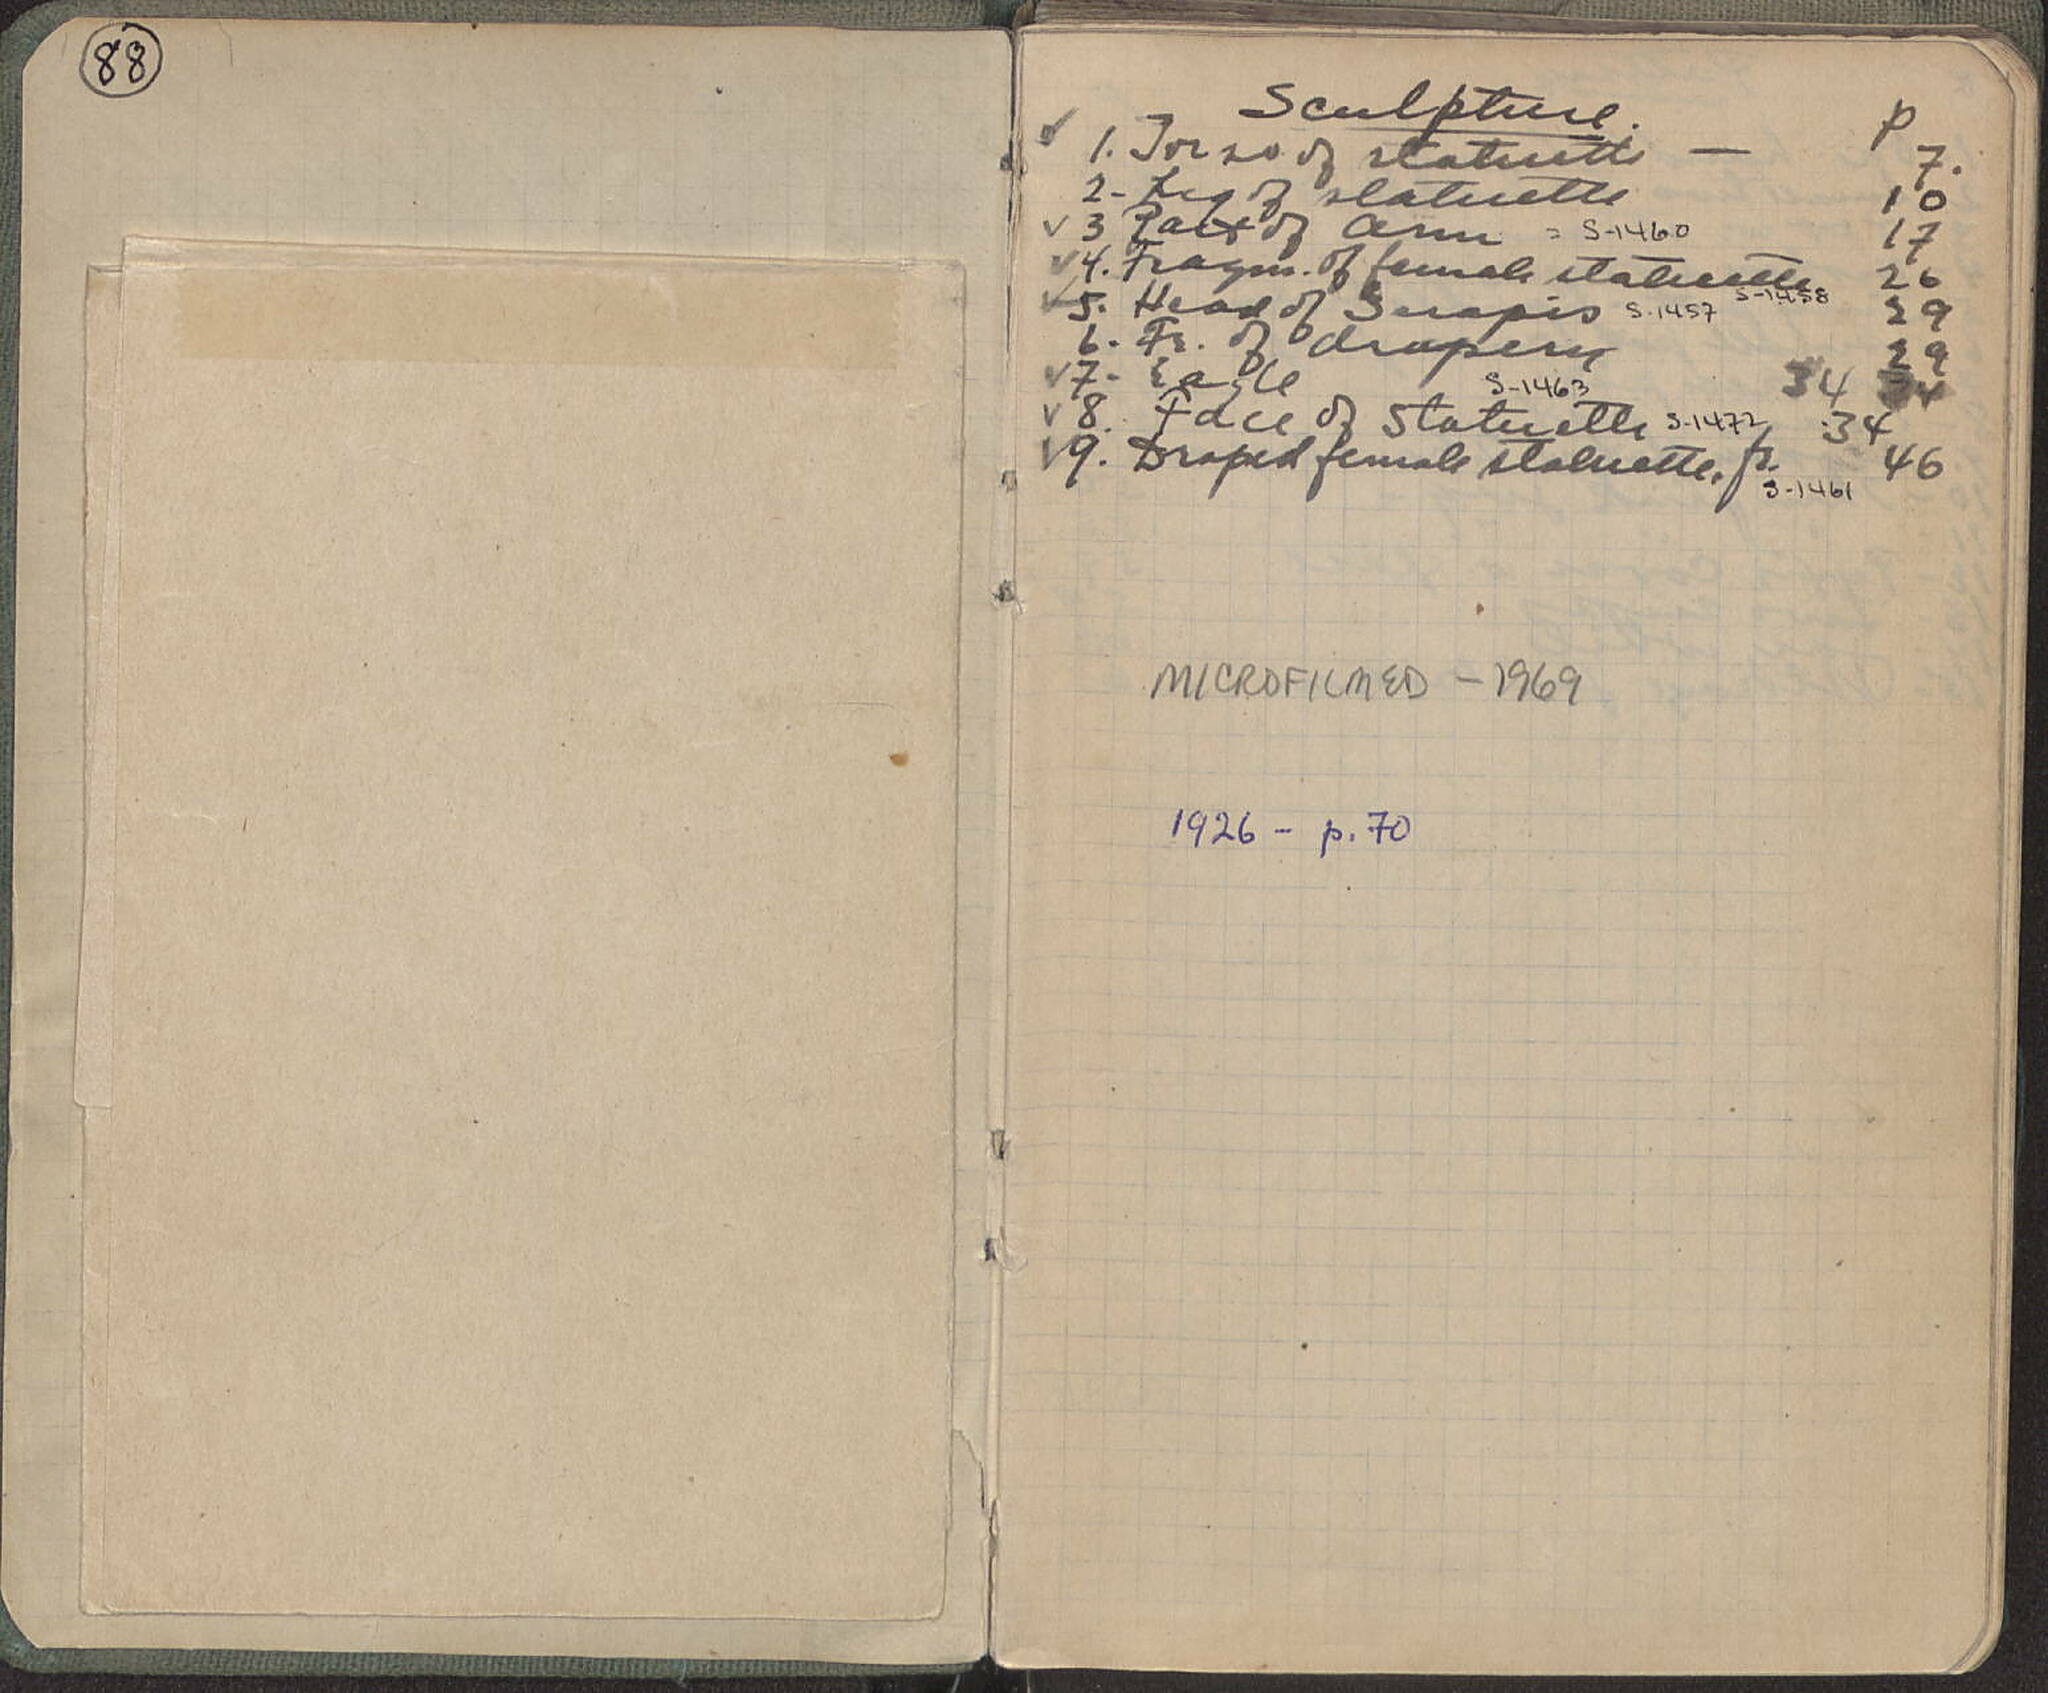 88
Sculpture. p
✓ 1. Torso of statuette — 7.
2- Leg of statuette 10
✓ 3 Part of arm = S-1460 17
✓ 4. Fragm. of female statuette S-1458 26
✓ 5. Head of Serapis S-1457 29
6. Fr. of drapery 29
✓ 7- Eagle S-1463 34 34
✓ 8. Face of Statuette S-1472 34
✓ 9. Draped female statuette. fr. S-1461 46
MICROFILMED - 1969
1926 - p. 70